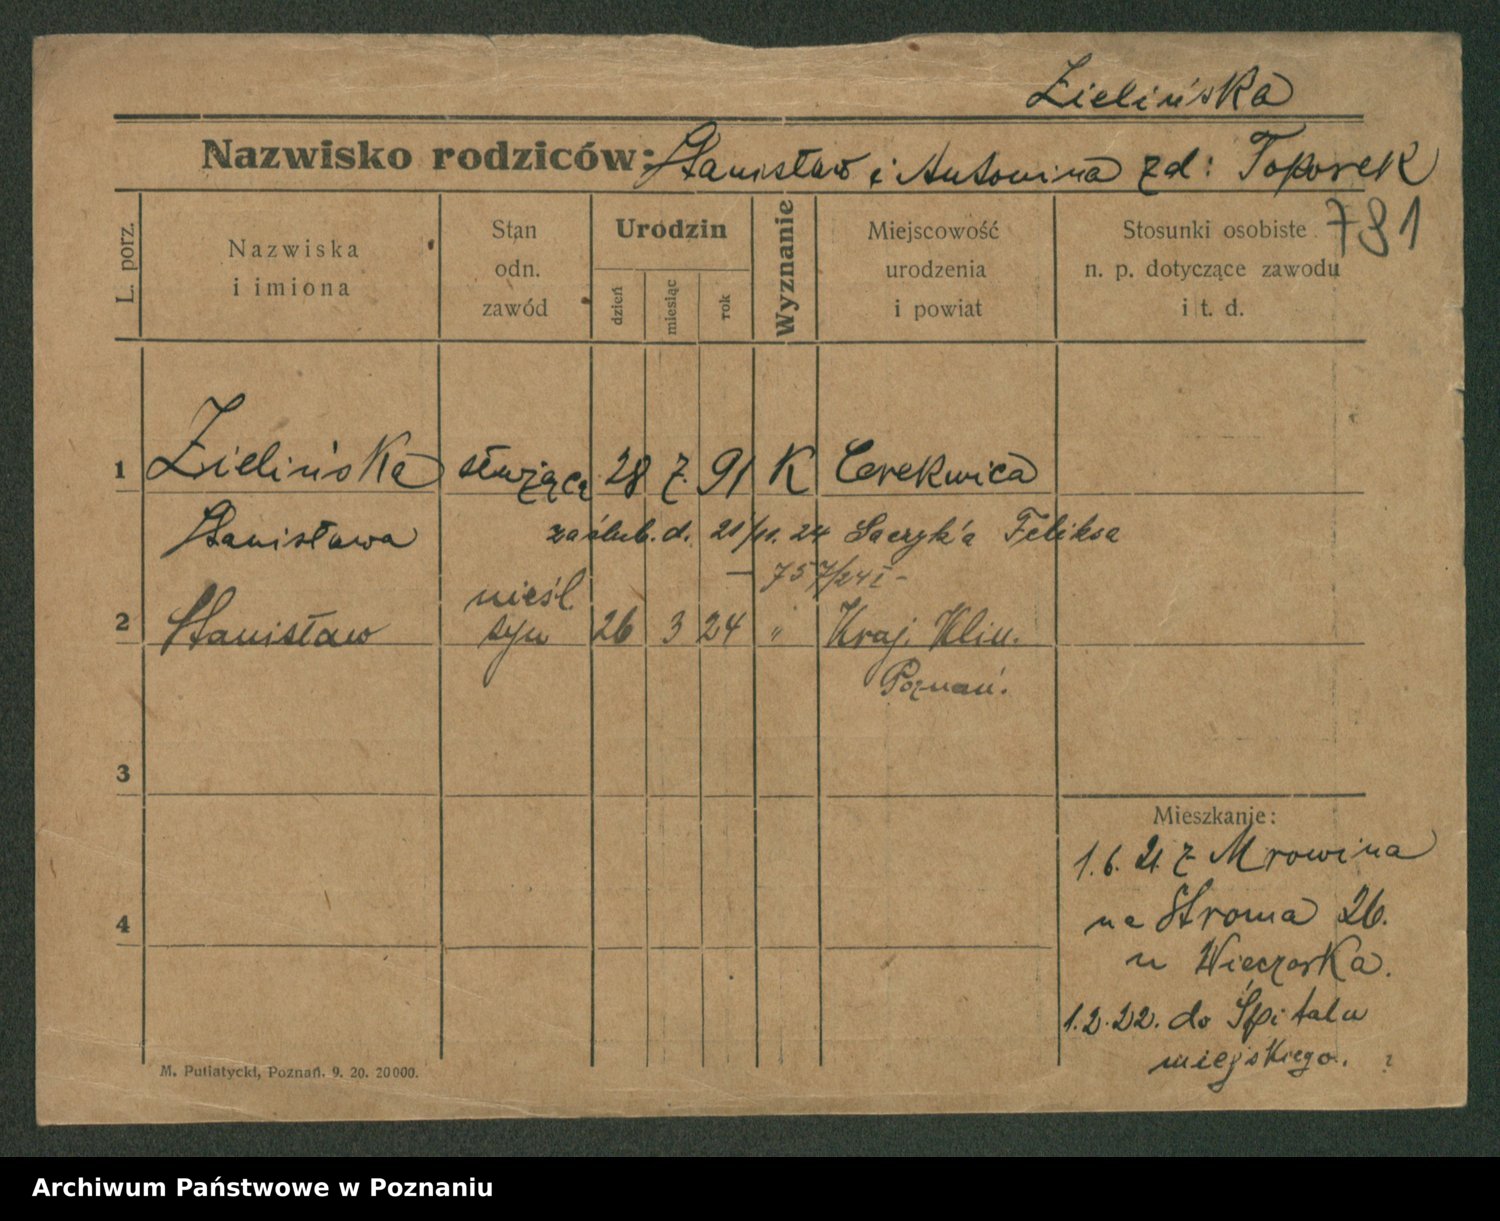 Zielińska
Nazwisko rodziców: Stanisław i Antonina zd: Toporek
781
L. porz.
Nazwiska i imiona
Stan odn. zawód
Urodzin
dzień
miesiąc
rok
Wyznanie
Miejscowość urodzenia i powiat
Stosunki osobiste n. p. dotyczące zawodu i t. d.
1 Zielińska służąca 28 7. 91 K Cerekwica
Stanisława zaślub. d. 21/11. 24 Feliksa
— 757/24 I —
nieśl.
2 Stanisław syn 26 3 24 " Kraj. Klin.
Poznań.
3
Mieszkanie:
1. 6. 21. z Mrowina
4
na Stroma 26.
u Wieczorka.
1. 2. 22. do Śpitalu
miejskiego.
M. Putiatycki, Poznań. 9. 20. 20000.
Archiwum Państwowe w Poznaniu